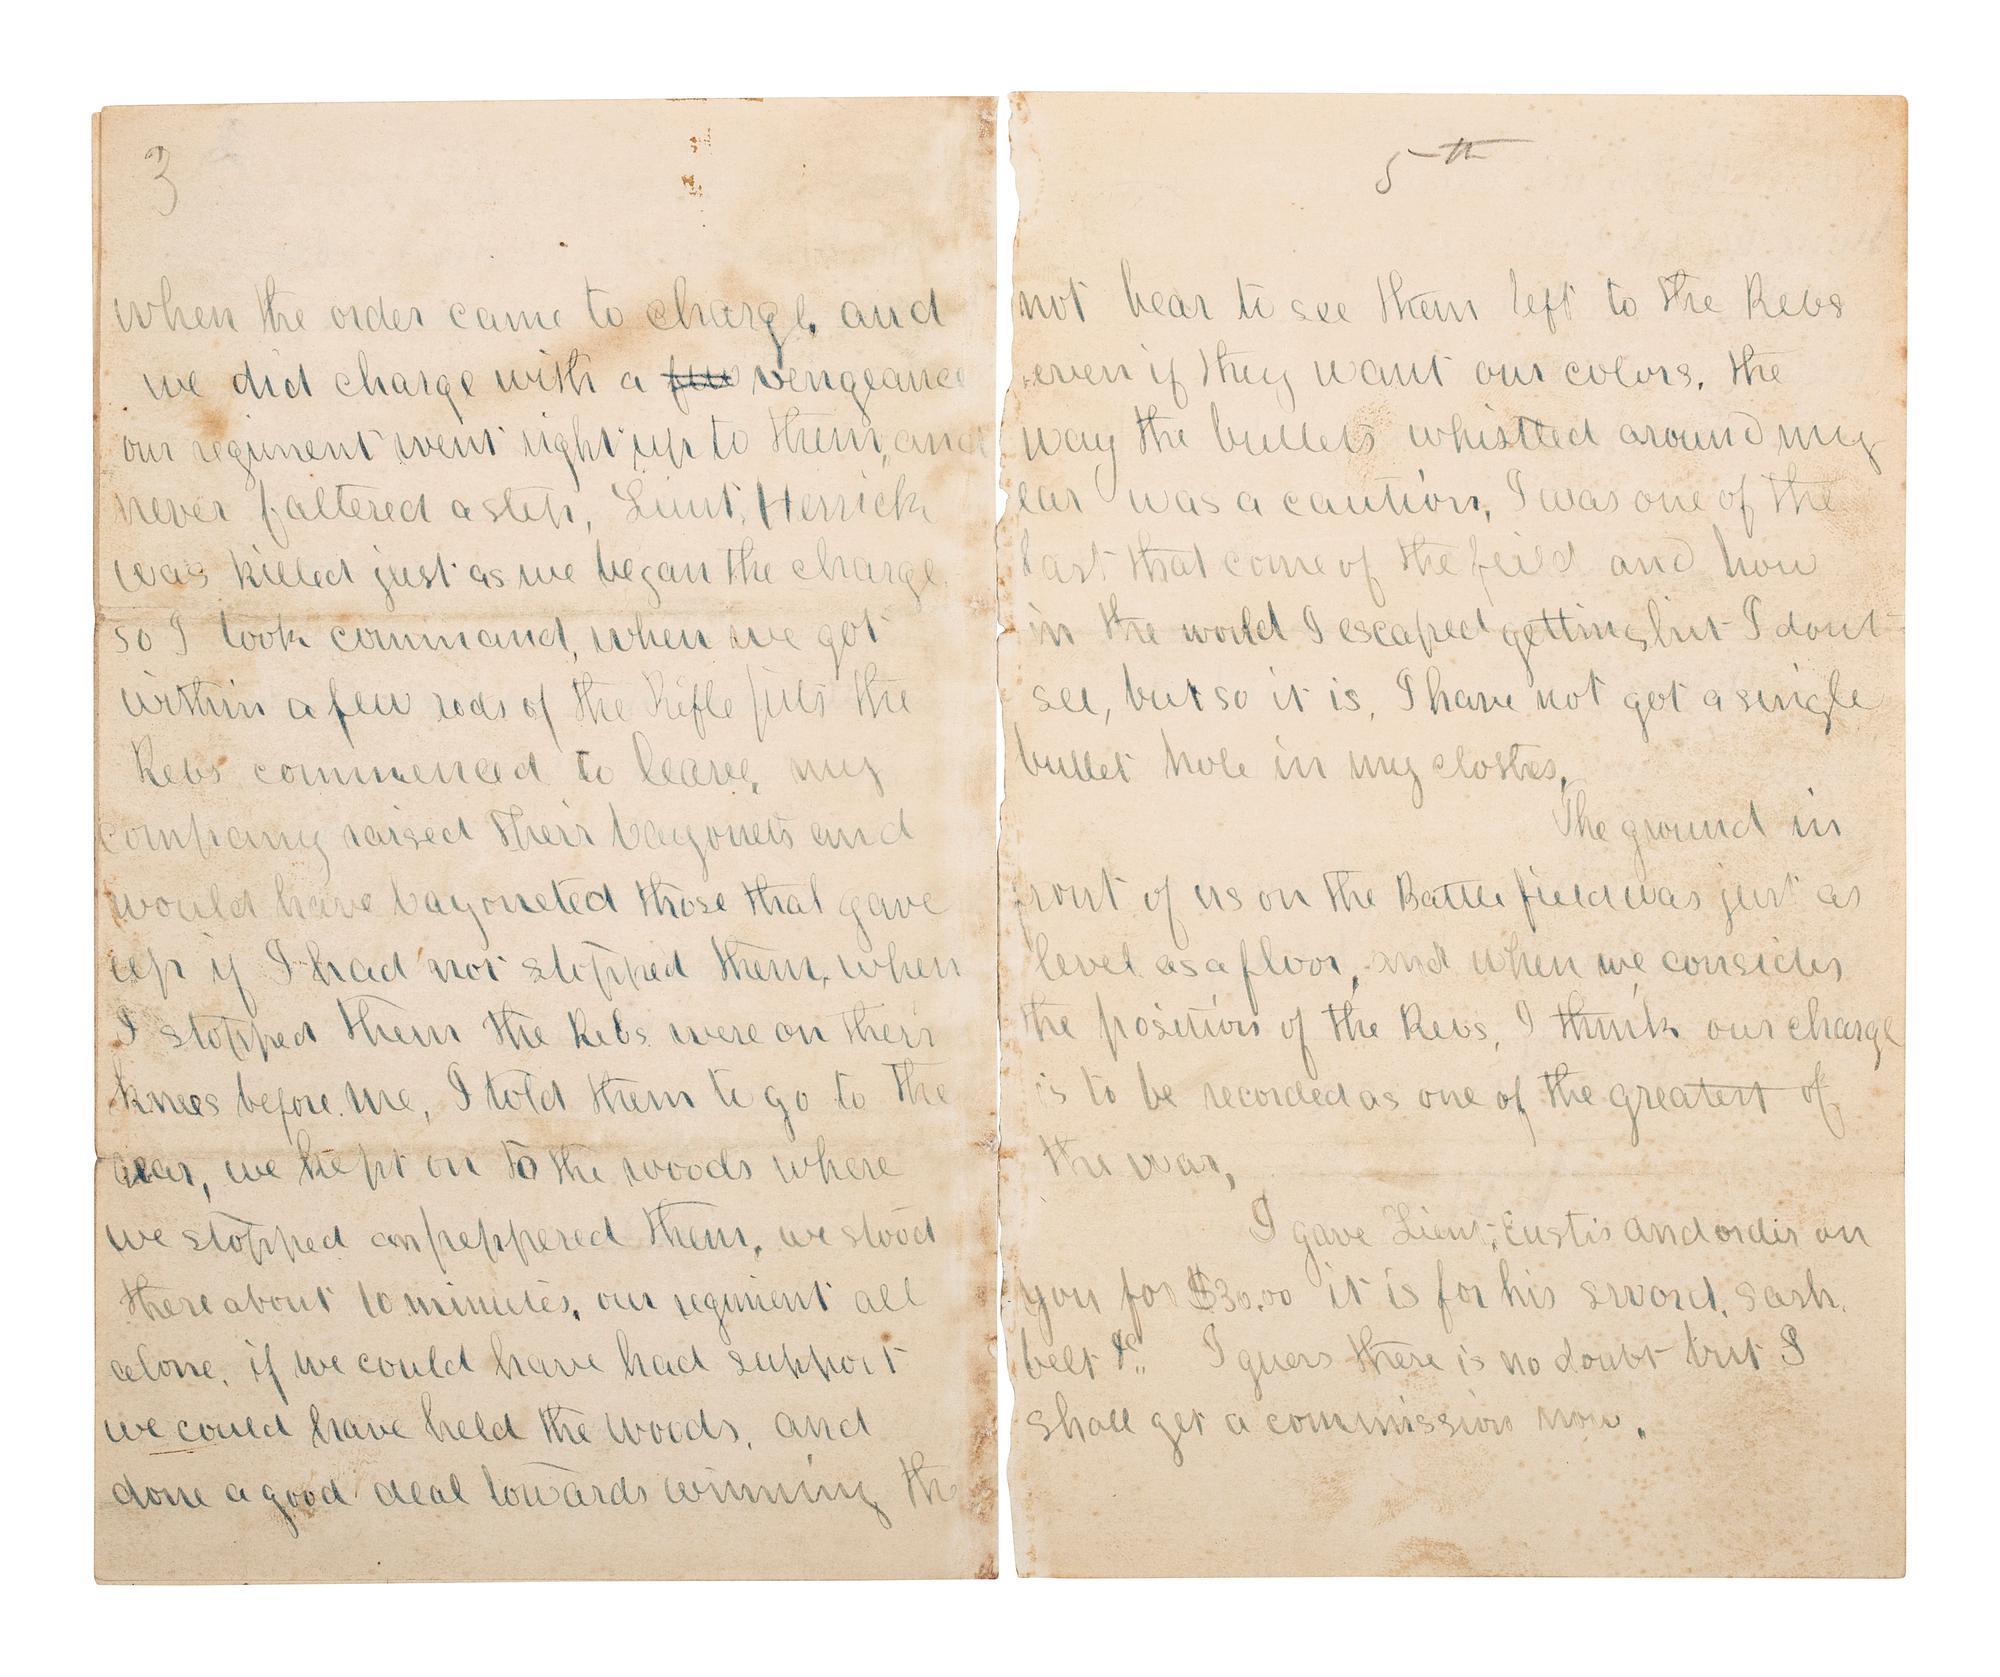 3
when the order came to charge, and
we did charge with a few vengeance
our regiment went right up to them, and
never faltered a step, Lieut, Herrick
was killed just as we began the charge.
so I took command, when we got
within a few rods of the Rifle pits the
Rebs commenced to leave, my
company raised their bayonets and
would have bayoneted those that gave
up if I had not stopped them, when
I stopped them the Rebs were on their
knees before me, I told them to go to the
rear, we kept on to the woods where
we stopped an peppered them, we stood
there about 10 minutes, our regiment all
alone, if we could have had support
we could have held the woods, and
done a good deal towards winning the
5th
not bear to see them left to the Rebs
even if they want our colors. the
way the bullets whistled around my
ear was a caution, I was one of the
last that come of the feild and how
in the world I escaped getting hit I dont
see, but so it is, I have not got a single
bullet hole in my clothes,
The ground in
front of us on the Battle field was just as
level as a floor, and when we consider
the position of the Rebs, I think our charge
is to be recorded as one of the greatest of
the war,
I gave Lieut, Eustis and order on
you for $30.00 it is for his sword, sash,
belt &c I guess there is no doubt but I
shall get a commission now.